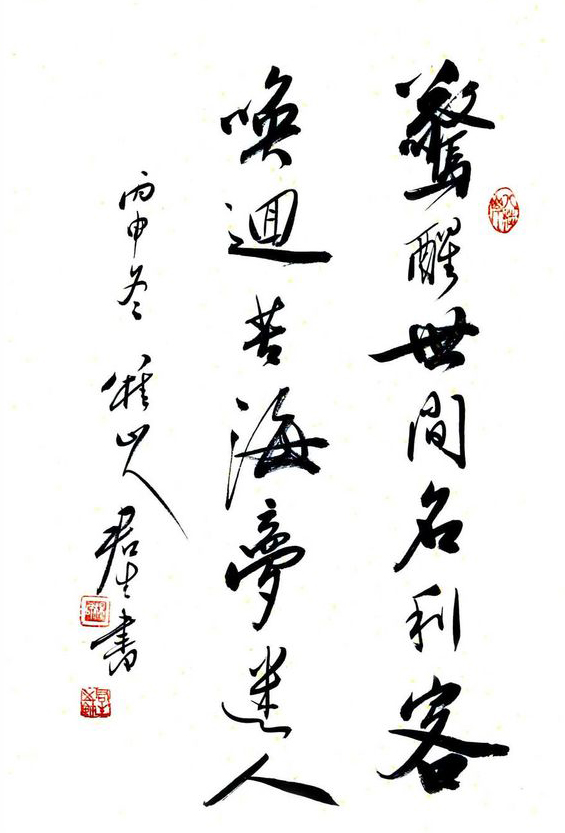 驚醒世間名利客
喚迴苦海夢迷人
丙申冬
山人君生書